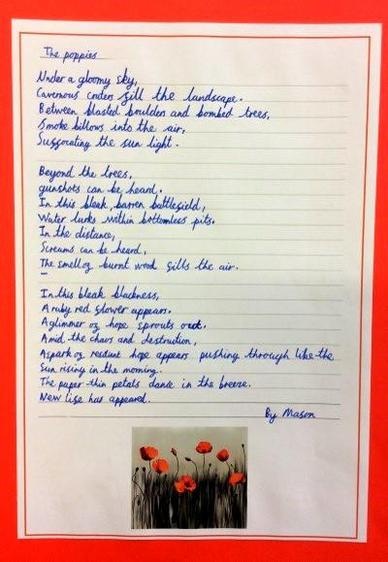 The poppies
Under a gloomy sky,
Cavernous craters fill the landscape.
Between blasted boulders and bombed trees,
Smoke billows into the air,
Suffocating the sun light.
Beyond the trees,
gunshots can be heard.
In this bleak, barren battlefield,
Water lurks within bottomless pits.
In the distance,
Screams can be heard,
The smell of burnt wood fills the air.
In this bleak blackness,
A ruby red flower appears.
A glimmer of hope sprouts out.
Amid the chaos and destruction,
A spark of radiant hope appears pushing through like the
Sun rising in the morning.
The paper thin petals dance in the breeze.
New life has appeared.
By Mason